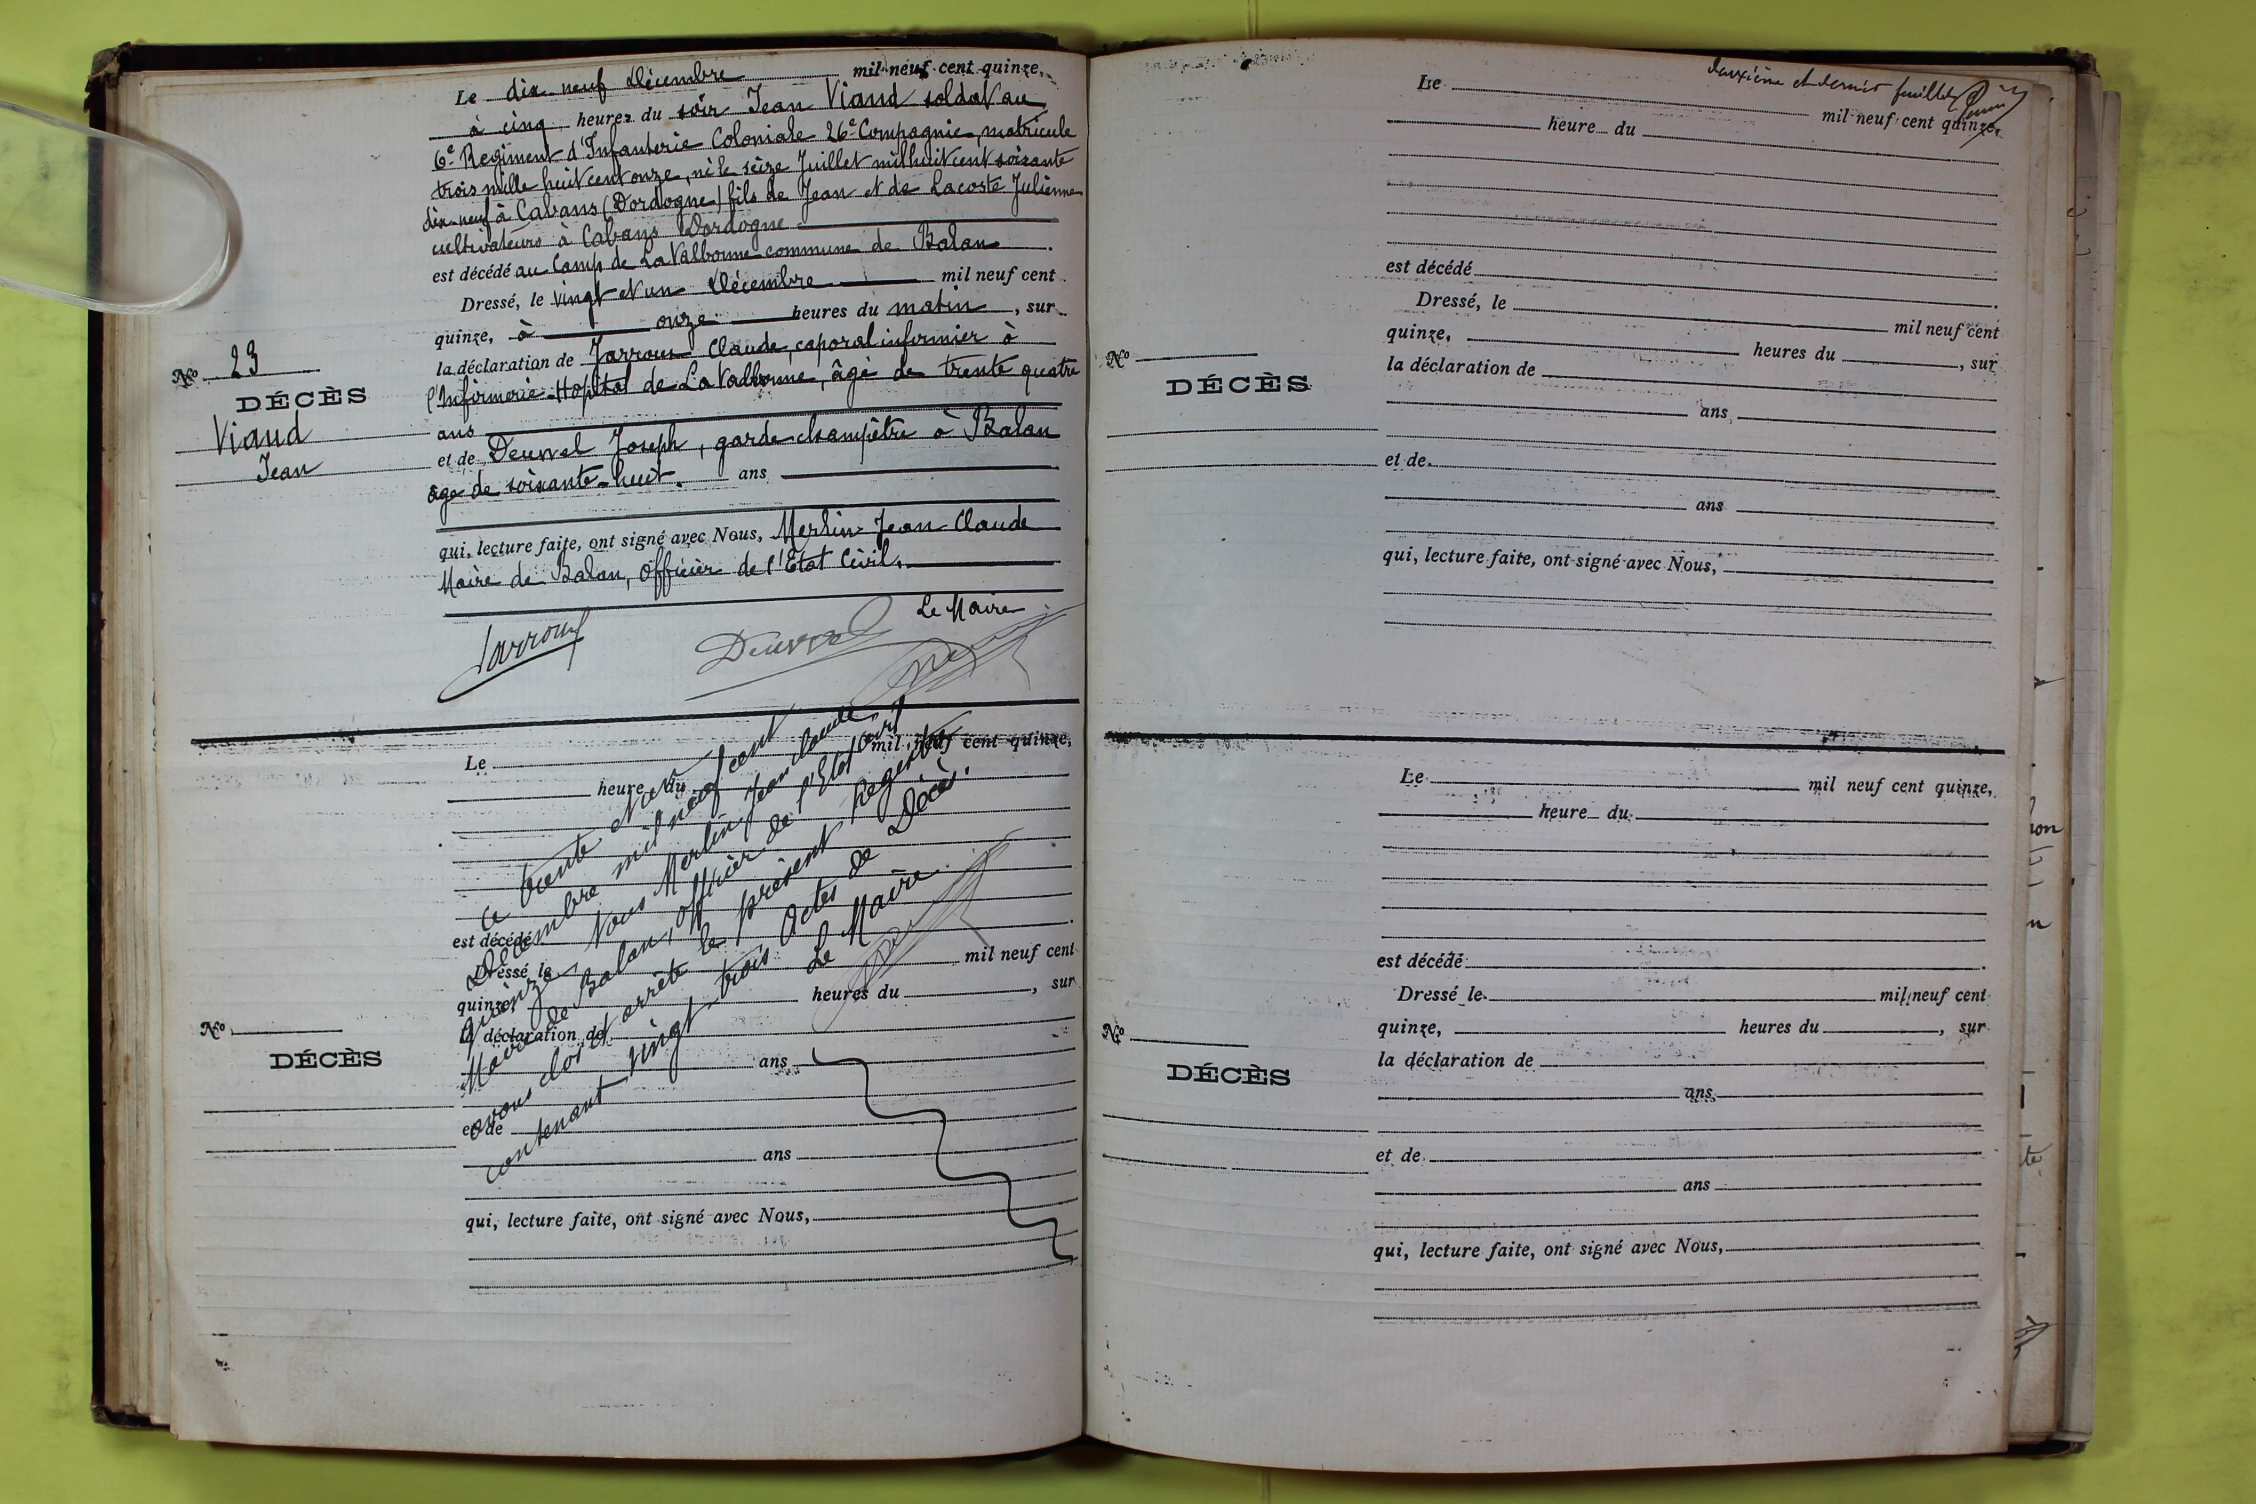 Le dix neuf Décembre mil neuf cent quinze,
à cinq heures du soir Jean Viaud soldat au
6e Regiment d'Infanterie Coloniale 26e Compagnie, matricule
trois mille huit cent onze, né le seize Juillet mil huit cent soixante
dix-neuf à Cabans (Dordogne) fils de Jean et de Lacoste Julienne
cultivateurs à Cabans Dordogne
est décédé au Camp de La Valbonne commune de Balan.
Dressé, le vingt et un Décembre mil neuf cent
quinze, à onze heures du matin, sur
la déclaration de Jarroux Claude, caporal infirmier à
l'Infirmerie-Hopital de La Valbonne, âgé de trente quatre
ans
et de Deurvel Joseph, garde-champêtre à Balan
âgé de soixante-huit. ans
qui, lecture faite, ont signé avec Nous, Merlin Jean Claude
Maire de Balan, Officier de l'Etat Civil.
No 23
DÉCÈS
Viaud
Jean
Le Maire
Jarroux
Deurvel
Le mil neuf cent quinze,
heure du
est décédé
Dressé le mil neuf cent
quinze, heures du , sur
la déclaration de
ans
et de
ans
qui, lecture faite, ont signé avec Nous,
No
DÉCÈS
Ce trente et un
Décembre mil neuf cent
quinze Nous Merlin Jean Claude
Maire de Balan, officier de l'Etat Civil
avons clos et arrêté le présent Registre
contenant vingt-trois Actes de Décès.
Le Maire
deuxième et dernier feuillet
Le mil neuf cent quinze,
heure du
est décédé
Dressé, le mil neuf cent
quinze, heures du , sur
la déclaration de
ans
et de
ans
qui, lecture faite, ont signé avec Nous,
No
DÉCÈS
Le mil neuf cent quinze,
heure du
est décédé
Dressé le mil neuf cent
quinze, heures du , sur
la déclaration de
ans
et de
ans
qui, lecture faite, ont signé avec Nous,
No
DÉCÈS